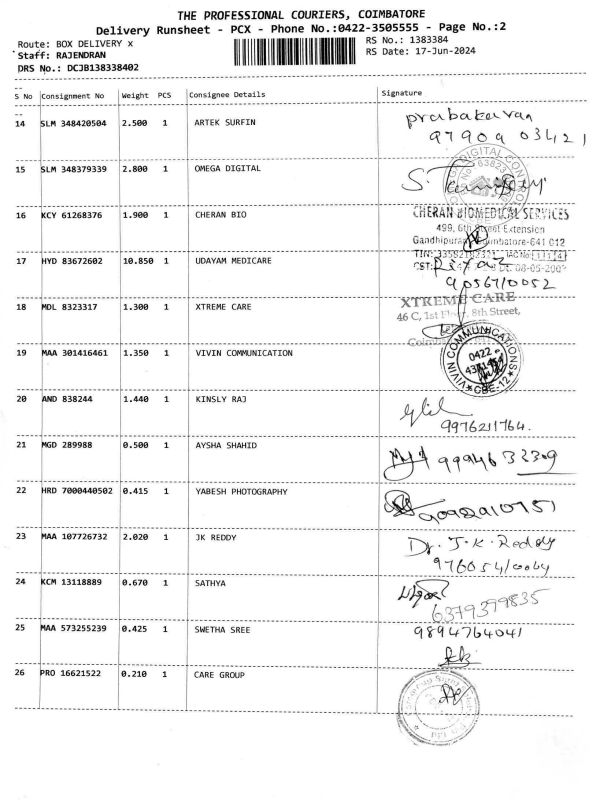 THE PROFESSIONAL COURIERS, COIMBATORE
Delivery Runsheet - PCX - Phone No.:0422-3505555 - Page No.:2
Route: BOX DELIVERY x
RS No.: 1383384
Staff: RAJENDRAN
RS Date: 17-Jun-2024
DRS No.: DCJB138338402
S No Consignment No Weight PCS Consignee Details Signature
14 SLM 348420504 2.500 1 ARTEK SURFIN prabakaran
97909 03421
15 SLM 348379339 2.800 1 OMEGA DIGITAL
DIGITAL CONTROL
16 KCY 61268376 1.900 1 CHERAN BIO CHERAN BIOMEDICAL SERVICES
499, 6th Street Extension
Gandhipuram Coimbatore-641 012
17 HYD 83672602 10.850 1 UDAYAM MEDICARE
9056710052
18 MDL 8323317 1.300 1 XTREME CARE XTREME CARE
46 C, 1st Floor, 8th Street,
19 MAA 301416461 1.350 1 VIVIN COMMUNICATION VIVIN COMMUNICATIONS
0422
CBE-12
20 AND 838244 1.440 1 KINSLY RAJ
9976211764.
21 MGD 289988 0.500 1 AYSHA SHAHID 9994632309
22 HRD 7000440502 0.415 1 YABESH PHOTOGRAPHY 9092910951
23 MAA 107726732 2.020 1 JK REDDY Dr. J.K. Reddy
97605410064
24 KCM 13118889 0.670 1 SATHYA
6379379835
25 MAA 573255239 0.425 1 SWETHA SREE 9894764041
26 PRO 16621522 0.210 1 CARE GROUP